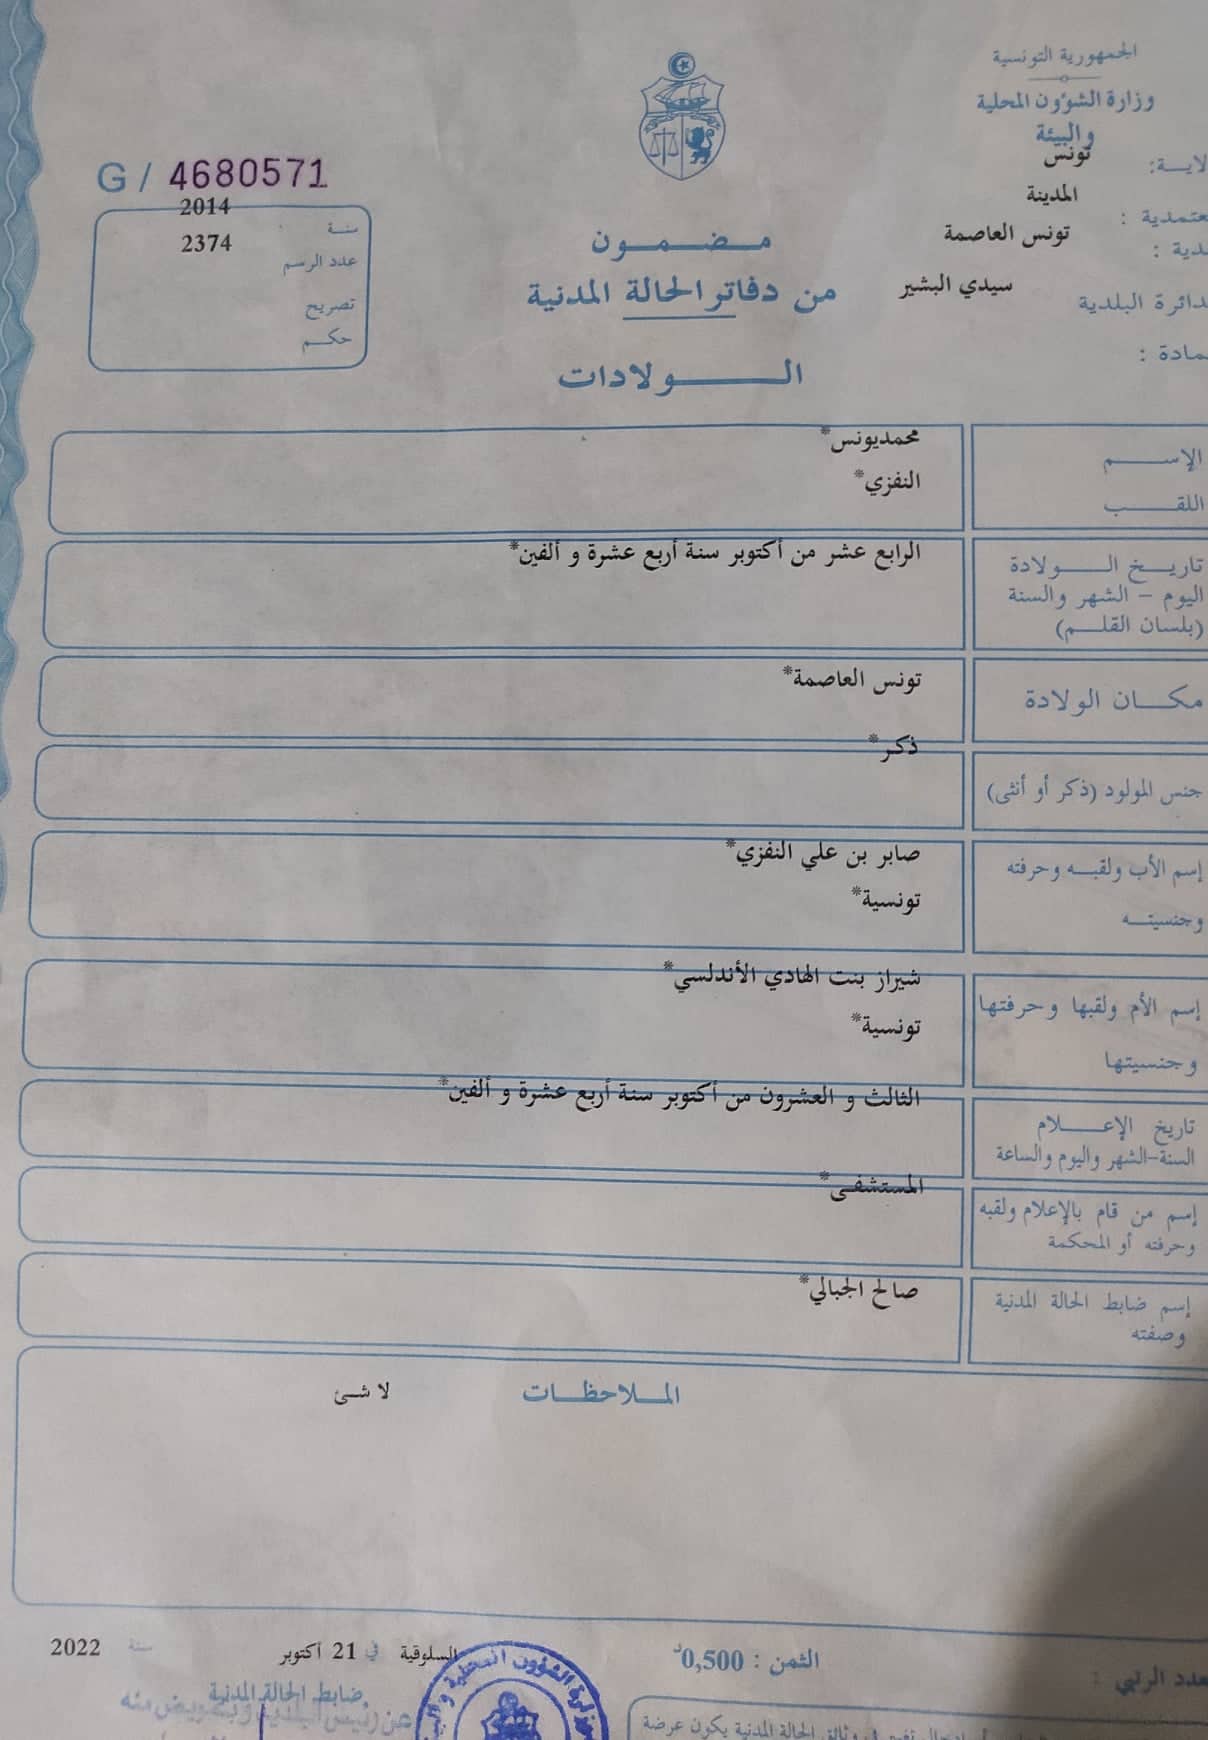 الجمهورية التونسية
وزارة الشؤون المحلية
والبيئة
تونس
المدينة
تونس العاصمة
الدائرة البلدية سيدي البشير
G / 4680571
سنة 2014
عدد الرسم 2374
تصريح
حكم
مضمون
من دفاتر الحالة المدنية
الولادات
الإسم محمديونس*
اللقب النفزي*
تاريخ الولادة الرابع عشر من أكتوبر سنة أربع عشرة و ألفين*
اليوم - الشهر والسنة
(بلسان القلم)
مكان الولادة تونس العاصمة*
جنس المولود (ذكر أو أنثى) ذكر*
إسم الأب ولقبه وحرفته صابر بن علي النفزي*
وجنسيته تونسية*
إسم الأم ولقبها وحرفتها شيراز بنت الهادي الأندلسي*
وجنسيتها تونسية*
تاريخ الإعلام الثالث و العشرون من أكتوبر سنة أربع عشرة و ألفين*
السنة-الشهر واليوم والساعة
إسم من قام بالإعلام ولقبه المستشفى*
وحرفته أو المحكمة
إسم ضابط الحالة المدنية صالح الجبالي*
وصفته
الملاحظات لا شئ
الثمن : 0,500د
السلوقية في 21 أكتوبر سنة 2022
ضابط الحالة المدنية
عن رئيس البلدية وبتفويض منه
وزارة الشؤون المحلية